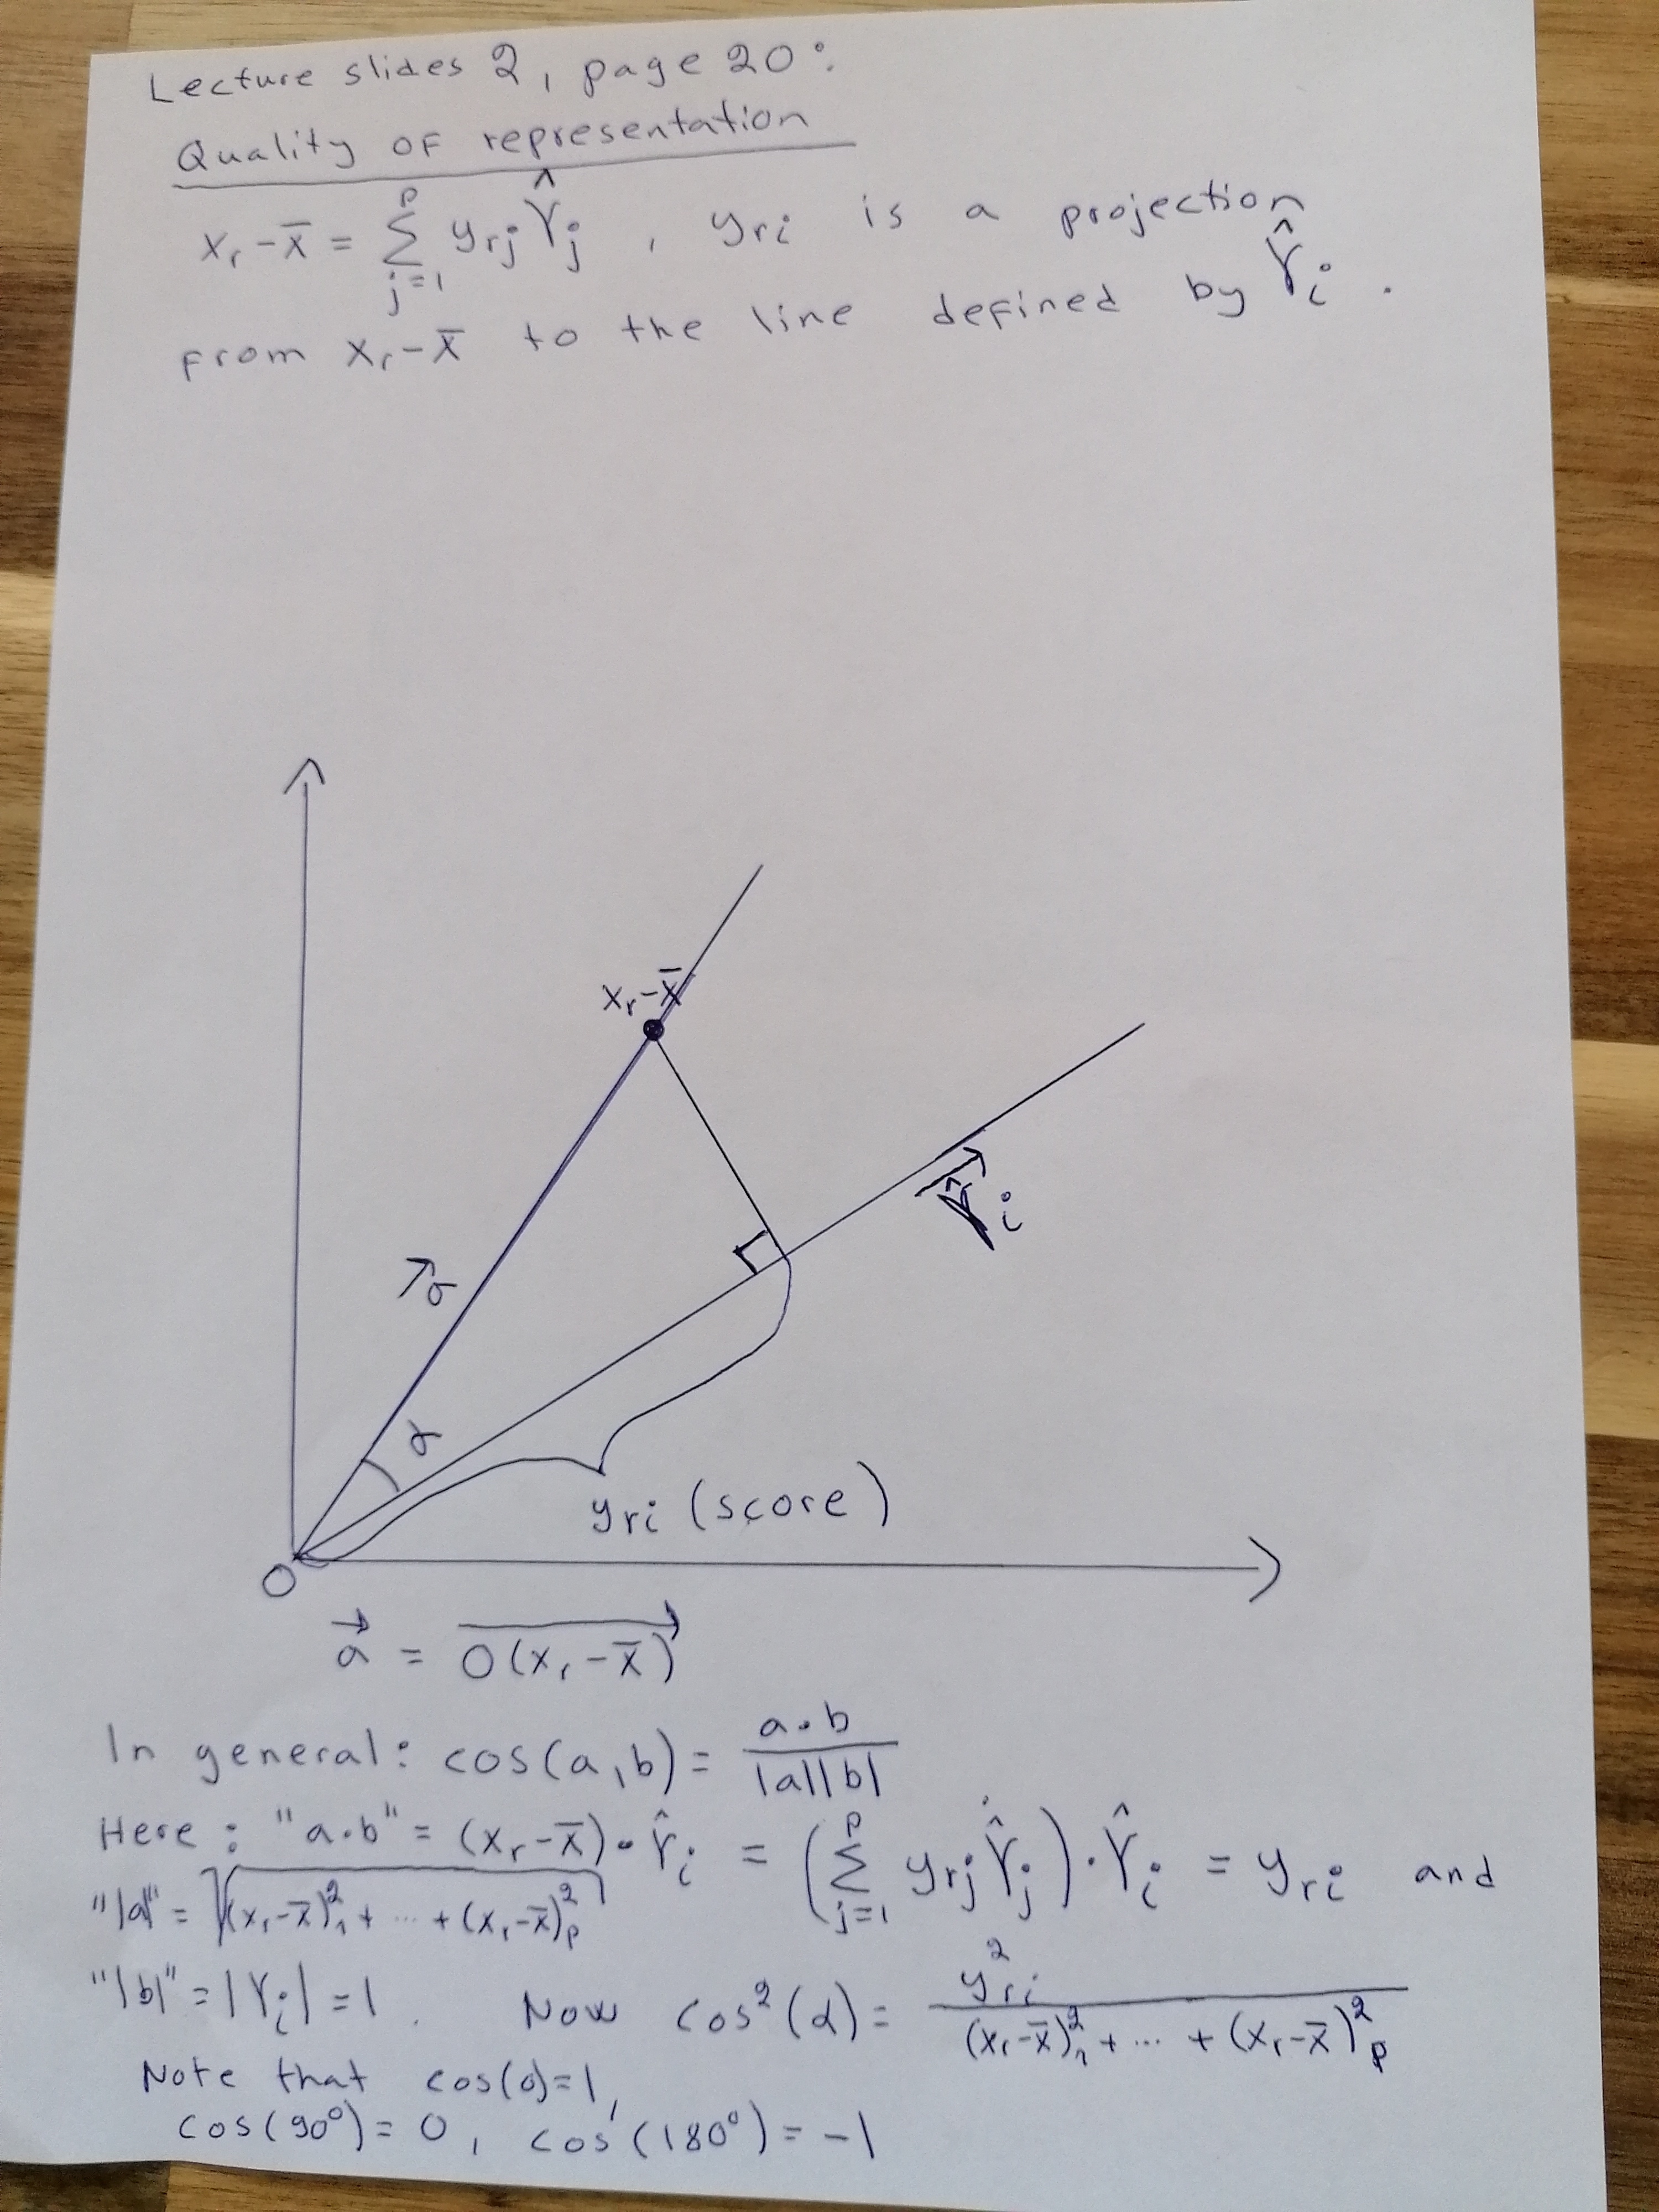 Lecture slides 2, page 20:
Quality of representation
xᵣ - x̄ = Σⱼ₌₁ᵖ yᵣⱼ γ̂ⱼ , yᵣᵢ is a projection
from xᵣ - x̄ to the line defined by γ̂ᵢ .
xᵣ - x̄
γ̂ᵢ
a⃗
α
yᵣᵢ (score)
O
a⃗ = O(xᵣ - x̄)
In general: cos(a,b) = a·b / |a||b|
Here: "a·b" = (xᵣ - x̄)·γ̂ᵢ = (Σⱼ₌₁ᵖ yᵣⱼ γ̂ⱼ)·γ̂ᵢ = yᵣᵢ and
"|a|" = √((xᵣ - x̄)₁² + ... + (xᵣ - x̄)ₚ²)
"|b|" = |γᵢ| = 1. Now cos²(α) = yᵣᵢ² / (xᵣ - x̄)₁² + ... + (xᵣ - x̄)ₚ²
Note that cos(0)=1,
cos(90°) = 0, cos(180°) = -1